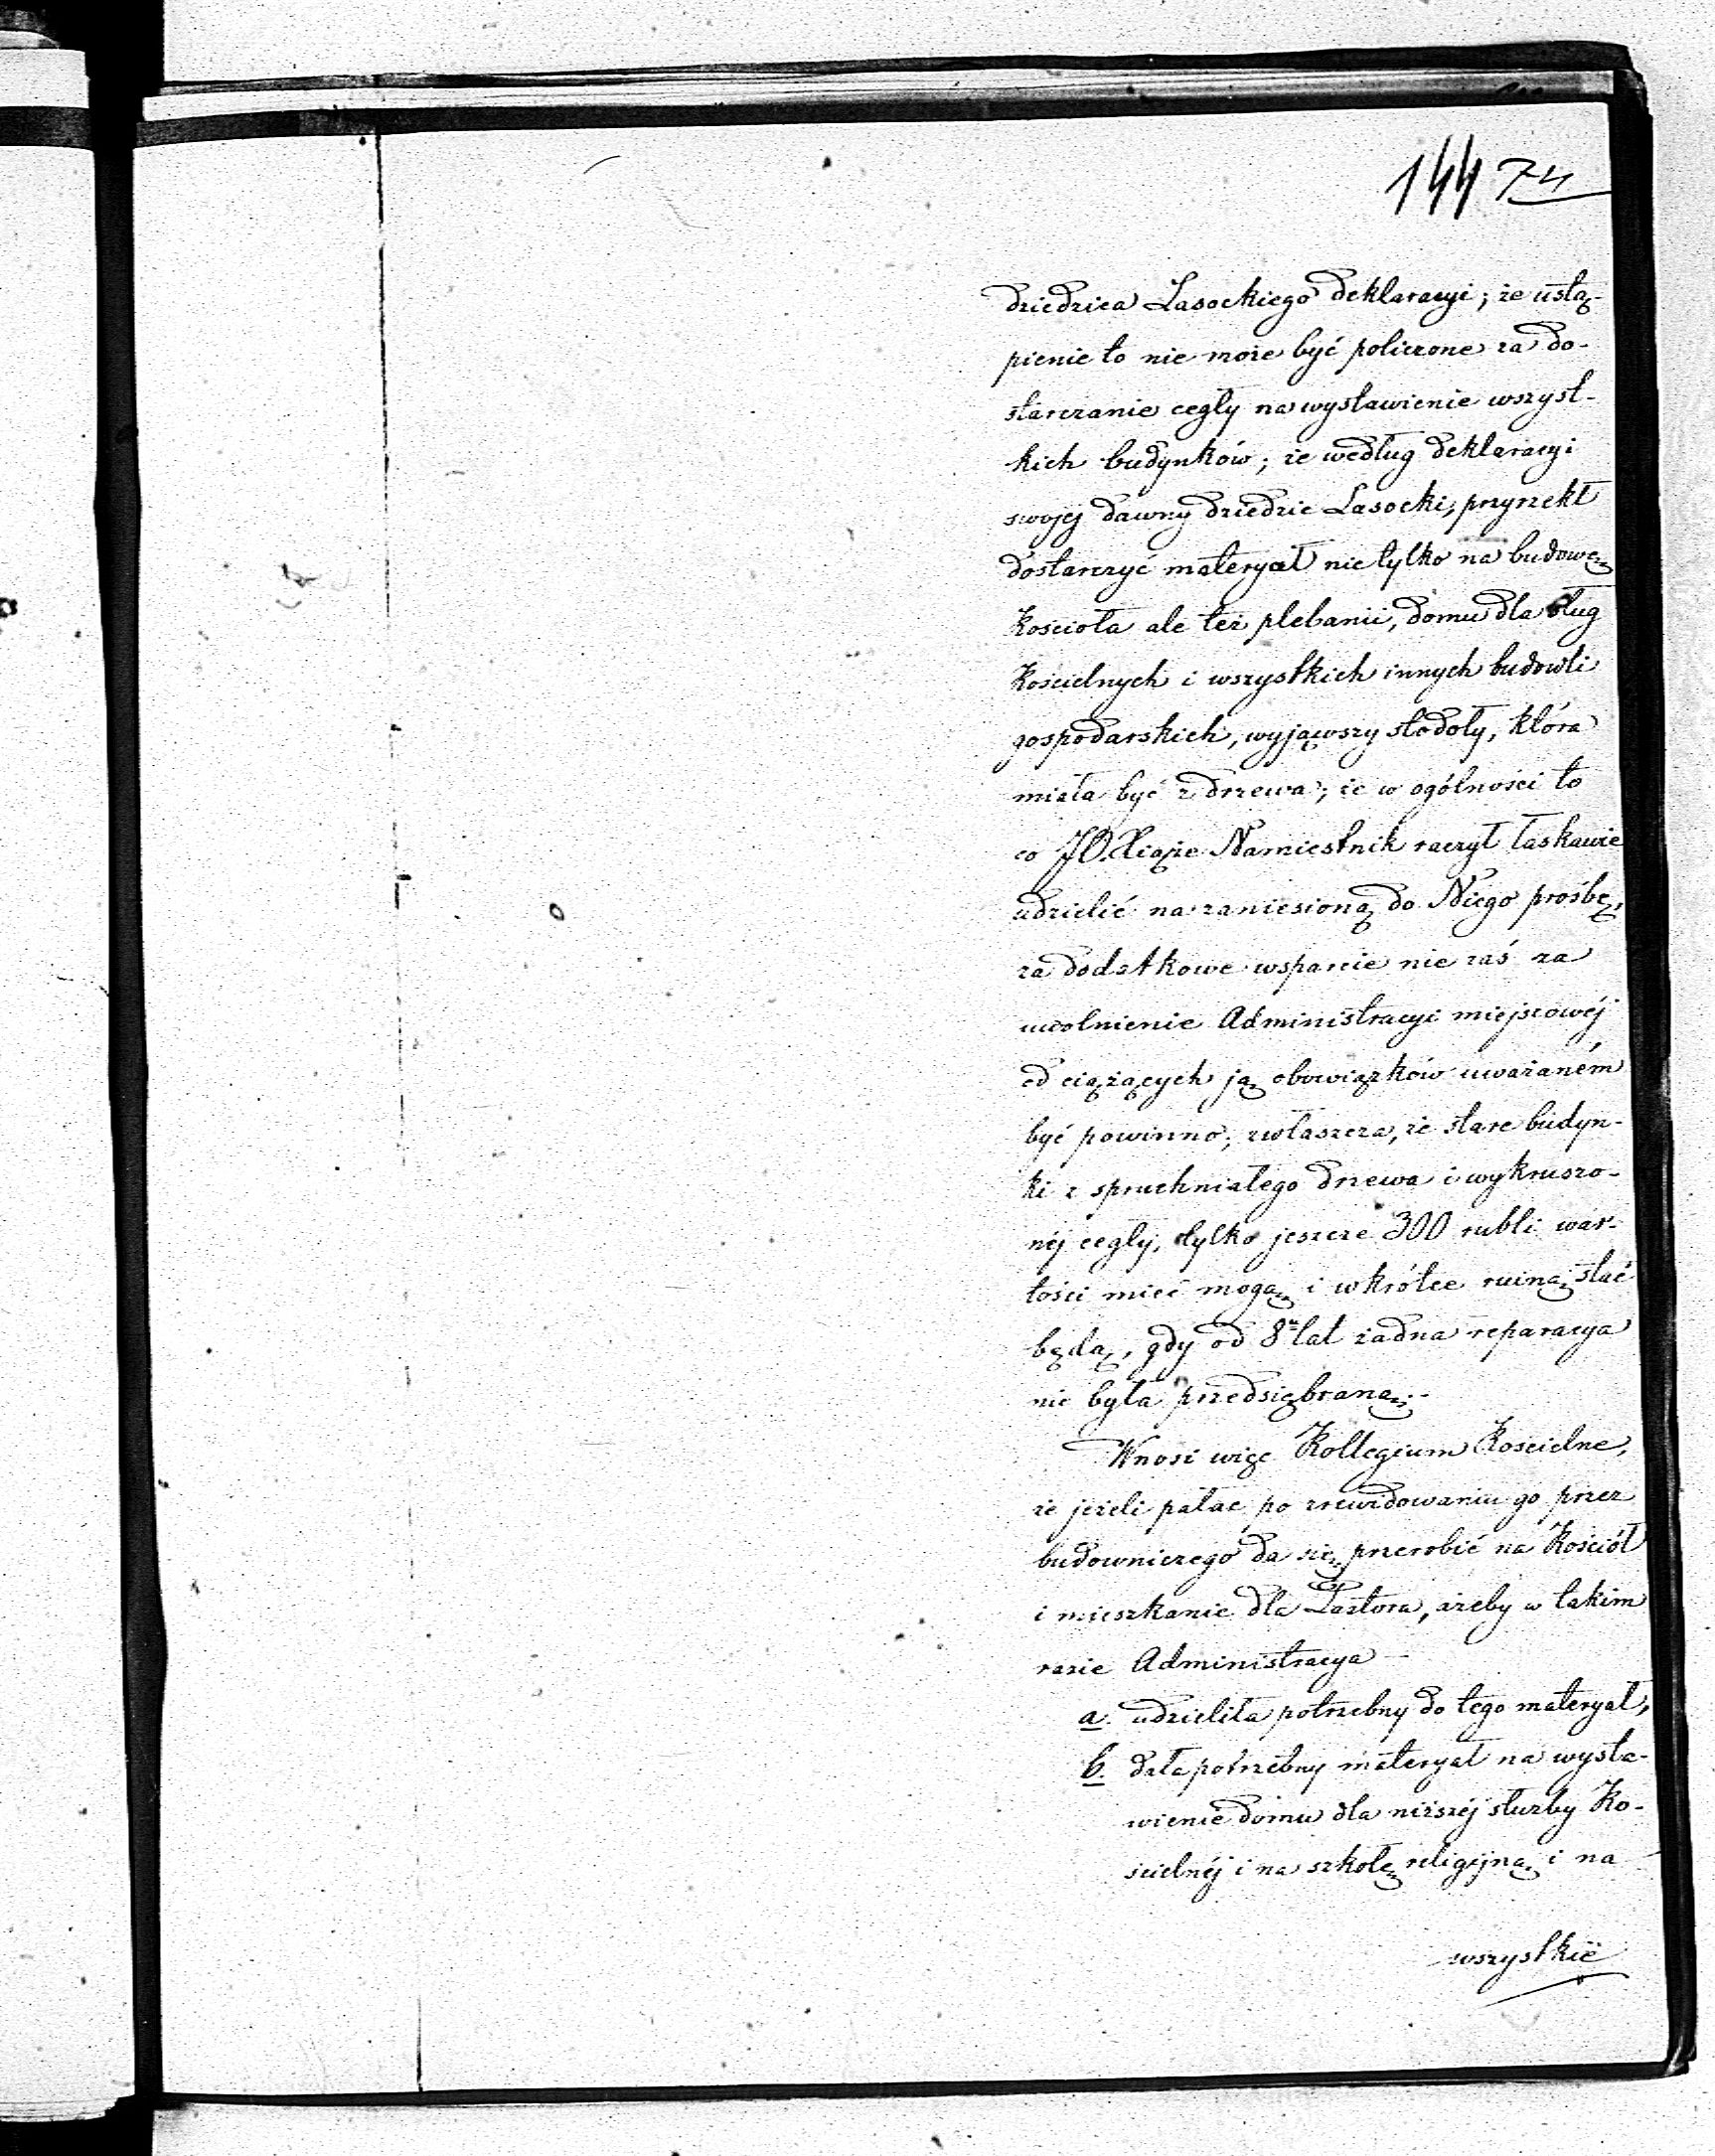 144 74
dziedzica Lasockiego deklaracyi; że ustą-
pienie to nie może być policzone za do-
starczanie cegły na wystawienie wszyst-
kich budynków; że według deklaracyi
swojej dawny dziedzic Lasocki, przyrzekł
dostarczyć materyał nie tylko na budowę
Kościoła ale też plebanii, domu dla sług
Kościelnych i wszystkich innych budowli
gospodarskich, wyjąwszy stodoły, która
miała być z drzewa; że w ogólności to
co JO. Xiąże Namiestnik raczył łaskawie
udzielić na zaniesioną do Niego prośbę,
za dodatkowe wsparcie nie zaś za
uwolnienie Administracyi miejscowéj
od ciążących ją obowiązków uważaném
być powinno; zwłaszcza, że stare budyn-
ki z spruchniałego drzewa i wykruszo-
néj cegły, tylko jeszcze 300 rubli war-
tości mieć mogą i wkrótce ruiną stać
będą, gdy od 8u lat żadna reparacya
nie była przedsiębraną.-
Wnosi więc Kollegium Kościelne,
że jeżeli pałac po zrewidowaniu go przez
budowniczego da się przerobić na Kościół
i mieszkanie dla Pastora, ażeby w takim
razie Administracya -
a. udzieliła potrzebny do tego materyał,
b. dała potrzebny materyał na wysta-
wienie domu dla niższéj służby Ko-
ścielnéj i na szkołę religijną i na
wszystkie